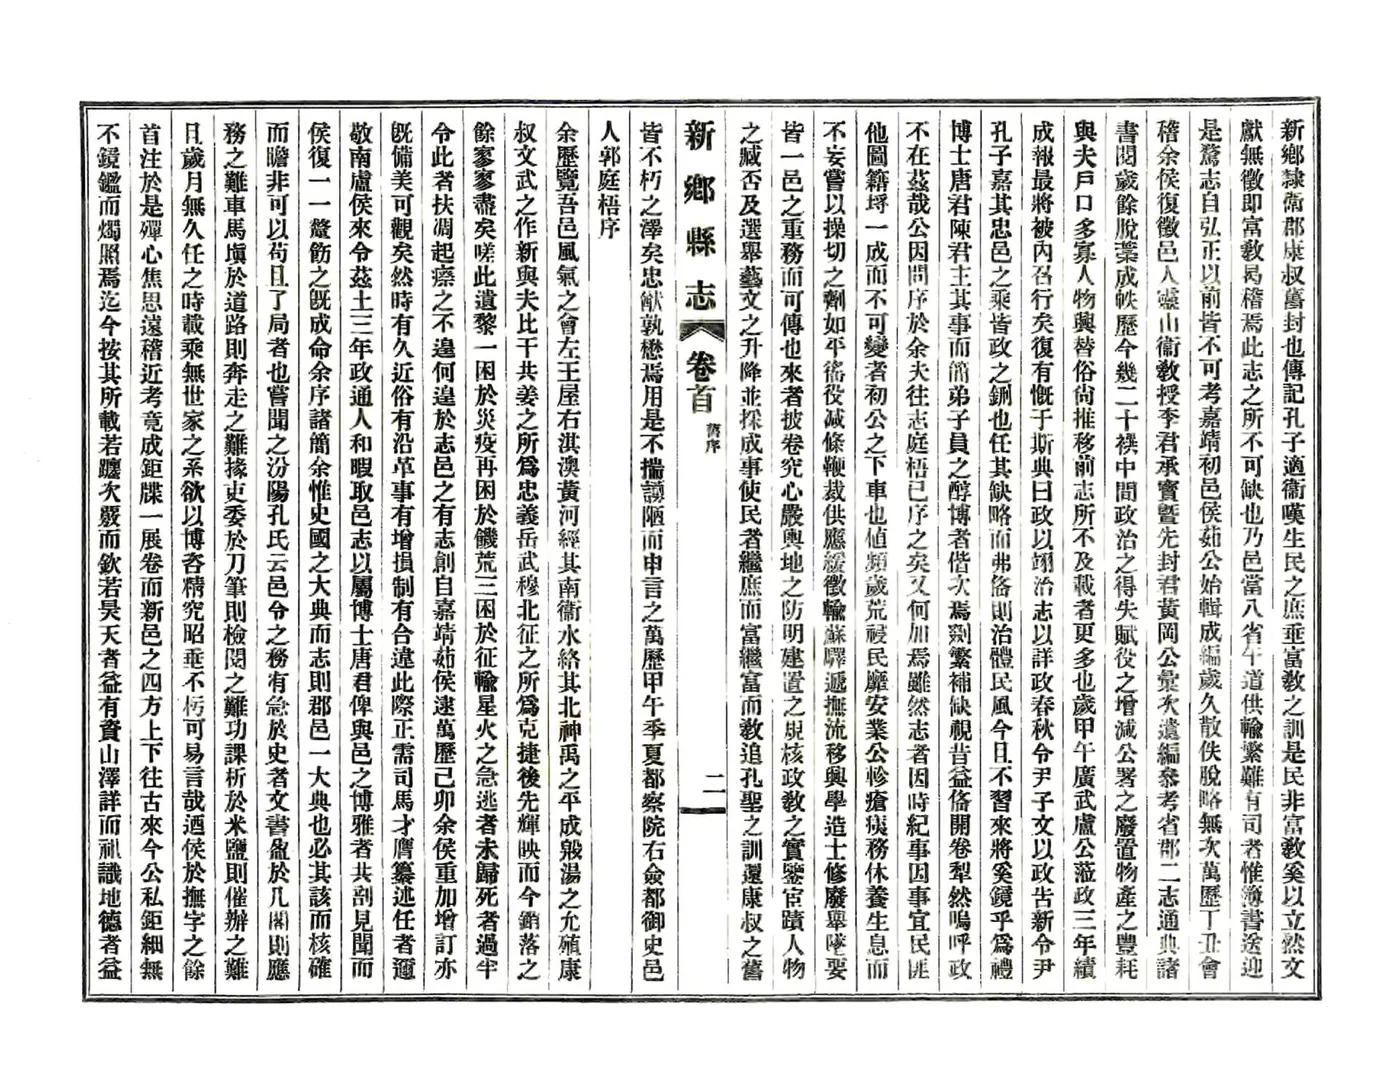 新鄉隸衞郡康叔舊封也傳記孔子適衞嘆生民之庶垂富敎之訓是民非富敎奚以立然文
獻無徵即富敎曷稽焉此志之所不可缺也乃邑當八省午道供輸繁難有司者惟簿書送迎
是騖志自弘正以前皆不可考嘉靖初邑侯茹公始輯成編歲久散佚脫略無次萬歷丁丑會
稽余侯復徵邑人靈山衞敎授李君承寶曁先封君黃岡公彙次遺編叅考省郡二志通典諸
書閱歲餘脫藁成帙歷今幾二十禩中間政治之得失賦役之增減公署之廢置物產之豐耗
與夫戶口多寡人物興替俗尙推移前志所不及載者更多也歲甲午廣武盧公蒞政三年績
成報最將被內召行矣復有慨于斯典曰政以翊治志以詳政春秋令尹子文以政告新令尹
孔子嘉其忠邑之乘皆政之鉶也任其缺略而弗俻則治體民風今且不習來將奚鏡乎爲禮
博士唐君陳君主其事而簡弟子員之醇博者偕次焉劉繁補缺覘昔益俻開卷犁然嗚呼政
不在茲哉公因問序於余夫往志庭梧已序之矣又何加焉雖然志者因時紀事因事宜民匪
他圖籍埒一成而不可變者初公之下車也値頻歲荒祲民靡安業公軫瘡痍務休養生息而
不妄嘗以操切之劑如平徭役減條鞭裁供應緩徵輸蘇驛遞撫流移興學造士修廢舉墜要
皆一邑之重務而可傳也來者披卷究心嚴輿地之防明建置之規核政敎之實鑒宦蹟人物
之臧否及選舉藝文之升降並採成事使民者繼庶而富繼富而敎追孔聖之訓還康叔之舊
新鄉縣志 卷首 舊序 二
皆不朽之澤矣忠猷孰懋焉用是不揣譾陋而申言之萬歷甲午季夏都察院右僉都御史邑
人郭庭梧序
余歷覽吾邑風氣之會左王屋右淇澳黃河經其南衞水絡其北神禹之平成毀湯之允殖康
叔文武之作新與夫比干共姜之所爲忠義岳武穆北征之所爲克捷後先輝映而今銷落之
餘寥寥盡矣嗟此遺黎一困於災疫再困於饑荒三困於征輸星火之急逃者未歸死者過半
令此者扶凋起瘵之不遑何遑於志邑之有志創自嘉靖茹侯逮萬歷己卯余侯重加增訂亦
旣備美可觀矣然時有久近俗有沿革事有增損制有合違此際正需司馬才膺纂述任者邇
敬南盧侯來令茲土三年政通人和暇取邑志以屬博士唐君俾與邑之博雅者共剖見聞而
侯復一一釐飭之旣成命余序諸簡余惟史國之大典而志則郡邑一大典也必其該而核確
而贍非可以苟且了局者也嘗聞之汾陽孔氏云邑令之務有急於史者文書盈於几閣則應
務之難車馬塡於道路則奔走之難掾吏委於刀筆則檢閱之難功課析於米鹽則催辦之難
且歲月無久任之時載乘無世家之系欲以博咨精究昭垂不朽可易言哉迺侯於撫字之餘
首注於是殫心焦思遠稽近考竟成鉅牒一展卷而新邑之四方上下往古來今公私鉅細無
不鏡鑑而燭照焉迄今按其所載若躔次嚴而欽若昊天者益有資山澤詳而祇識地德者益